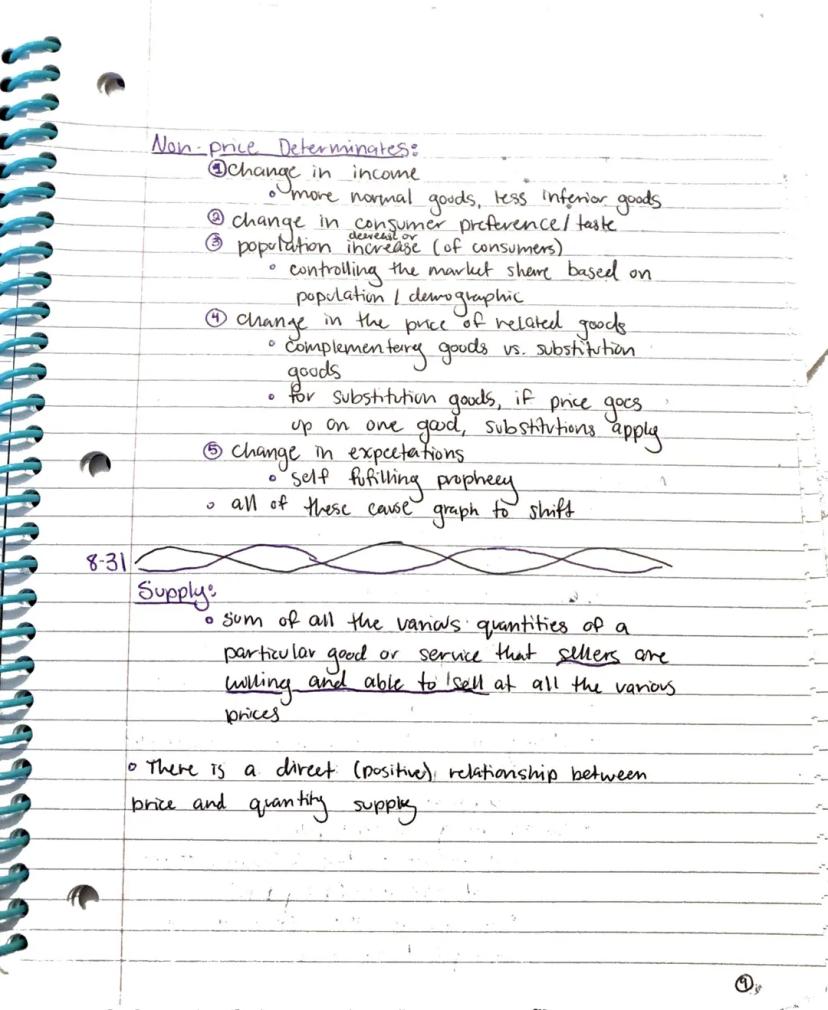 Non-price Determinates:
① change in income
◦ more normal goods, less inferior goods
② change in consumer preference/taste
decrease or
③ population increase (of consumers)
◦ controlling the market share based on
population / demographic
④ change in the price of related goods
◦ complementary goods vs. substitution
goods
◦ for substitution goods, if price goes
up on one good, substitutions apply
⑤ change in expectations
◦ self fufilling prophecy
◦ all of these cause graph to shift
8-31
Supply:
◦ sum of all the various quantities of a
particular good or service that sellers are
willing and able to sell at all the various
prices
◦ There is a direct (positive) relationship between
price and quantity supply
⑨